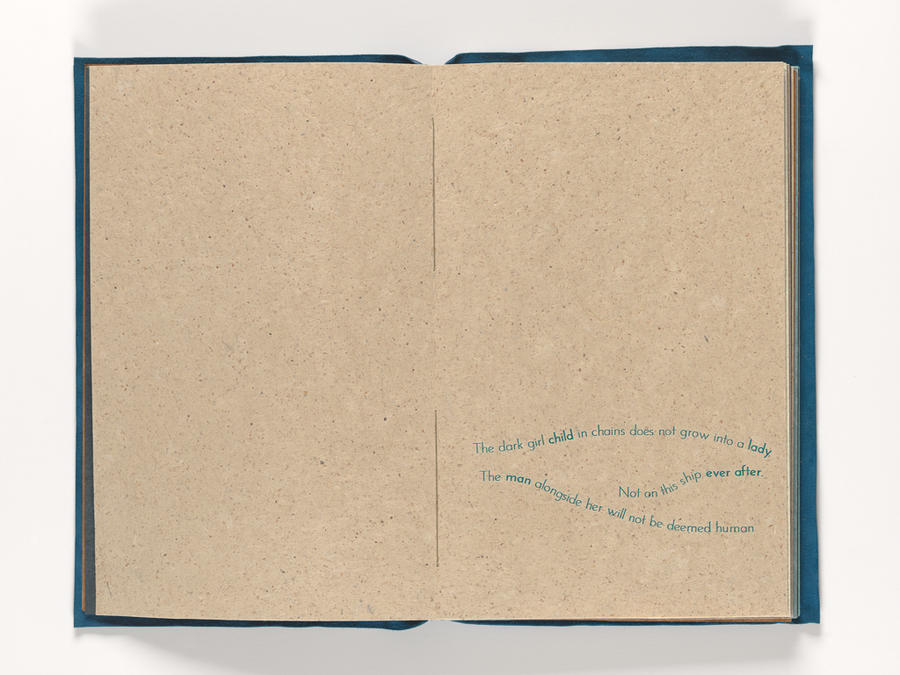 The dark girl child in chains does not grow into a lady.
The man alongside her will not be deemed human
Not on this ship ever after.